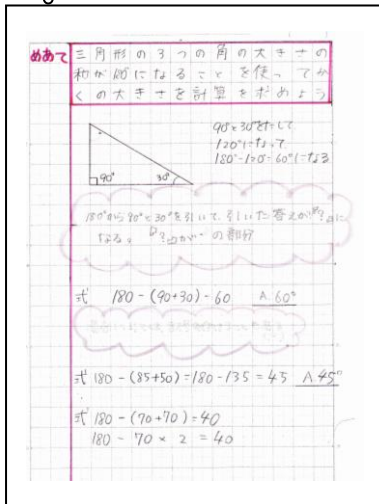 めあて
三角形の3つの角の大きさの
和が180°になることを使ってか
くの大きさを計算を求めよう
90°と30°をたして
120°になって
180°-120=60°になる
90°
30°
180°から90°と30°を引いて、引いた答えが?に
なる。
の部分
式 180-(90+30)-60 A.60°
式 180-(85+50)=180-135=45 A.45°
式 180-(70+70)=40
180-70×2=40